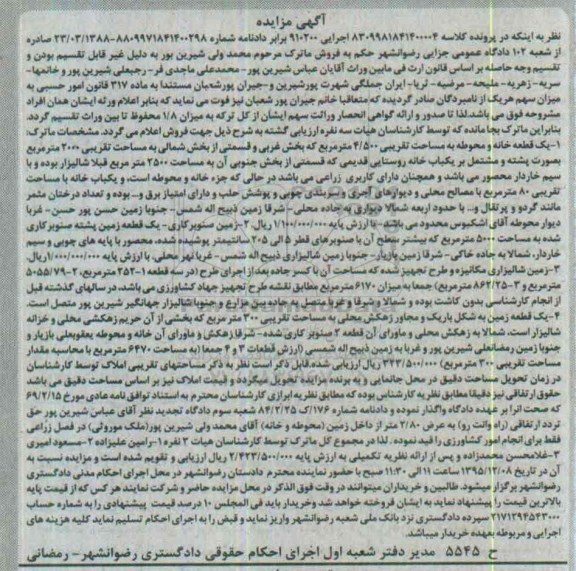 آگهی مزایده
نظر به اینکه در پرونده کلاسه ۸۳۰۹۹۸۱۸۴۱۴۰۰۰۰۴ اجرایی ۹۱۰۲۰۰ برابر دادنامه شماره ۸۸۰۹۹۷۱۸۴۱۴۰۰۲۹۸-۲۳/۰۳/۱۳۸۸ صادره
از شعبه ۱۰۲ دادگاه عمومی جزایی رضوانشهر حکم به فروش ماترک مرحوم محمد ولی شیرین پور به دلیل غیر قابل تقسیم بودن و
تقسیم وجه حاصله بر اساس قانون ارث فی مابین وراث آقایان عباس شیرین پور- محمدعلی ماجدی فر- رجبعلی شیرین پور و خانمها-
سریه- زهریه- ملیحه- مرضیه- ثریا- ایران جملگی شهرت پورشیرین و-جیران پورشعبان مستندا به ماده ۳۱۷ قانون امور حسبی به
میزان سهم هریک از نامبردگان صادر گردیده که متعاقبا خانم جیران پور شعبان نیز فوت می نماید که بنابر اعلام ورثه ایشان همان افراد
مشروحه فوق می باشد. لذا تا صدور و ارائه گواهی انحصار وراثت سهم ایشان از کل ترکه به میزان ۱/۸ محفوظ تا بین وراث تقسیم گردد.
بنابراین ماترک بجا مانده که توسط کارشناسان هیات سه نفره ارزیابی گشته به شرح ذیل جهت فروش اعلام می گردد. مشخصات ماترک:
۱-یک قطعه خانه و محوطه به مساحت تقریبی ۴/۵۰۰ مترمربع که بخش غربی و قسمتی از بخش شمالی به مساحت تقریبی ۲۰۰۰ مترمربع
بصورت پشته و مشتمل بر یکباب خانه روستایی قدیمی که قسمتی از بخش جنوبی آن به مساحت ۲۵۰۰ متر مربع قبلا شالیزار بوده و با
سیم خاردار محصور می باشد و همچنان دارای کاربری زراعی می باشد در حالی که جزء خانه و محوطه است، و یکباب خانه با مساحت
تقریبی ۸۰ مترمربع با مصالح محلی و دیوارهای آجری و سربندی چوبی و پوشش حلب و دارای امتیاز برق و.. بوده و تعداد درختان مثمر
مانند گردو و پرتقال و... با حدود اربعه شمالا دیواری به جاده محلی- شرقا زمین ذبیح اله شمس- جنوبا زمین حسن پور حسن- غربا
دیوار محوطه آقای اشکبوس محدود می باشد- با ارزش پایه ۱/۱۰۰/۰۰۰/۰۰۰ ریال. ۲-زمین صنوبرکاری- یک قطعه زمین پشته صنوبرکاری
شده به مساحت ۵۰۰۰ مترمربع که بیشتر سطح آن با صنوبرهای قطر ۵ الی ۲۰۵ سانتیمتر پوشیده شده، محصور با پایه های چوبی و سیم
خاردار، شمالا به جاده خاکی- شرقا زمین بازیار- جنوبا زمین شالیزاری ذبیح اله شمس- غربا نهر محلی. با ارزش پایه ۱/۰۰۰/۰۰۰/۰۰۰ ریال.
۳-زمین شالیزاری مکانیزه و طرح تجهیز شده که مساحت آن با کسر جاده بعد از اجرای طرح (در سه قطعه ۱-۲۵۲ مترمربع، ۲-۵۰۵۵/۷۹
مترمربع و ۳-۸۶۲/۲۵ مترمربع) جمعا به میزان ۶۱۷۰ مترمربع مطابق نقشه طرح تجهیز جهاد کشاورزی می باشد. در سالهای گذشته قبل
از انجام کارشناسی بدون کاشت بوده و شمالا و شرقا و غربا متصل به جاده بین مزارع و جنوبا شالیزار جهانگیر شیرین پور متصل است.
۴-یک قطعه زمین به شکل باریک و مجاور زهکش محلی به مساحت تقریبی ۳۰۰ متر مربع که بخشی از آن حریم زهکشی محلی و خزانه
شالیزار است، شمالا به زهکش محلی و ماورای آن قطعه ۲ صنوبر کاری شده- شرقا زهکش و ماورای آن خانه و محوطه یعقوبعلی بازیار و
جنوبا زمین رمضانعلی شیرین پور و غربا به زمین ذبیح اله شمسی (ارزش قطعات ۳ و ۴ جمعا (به مساحت ۶۴۷۰ مترمربع با محاسبه مقدار
مساحت تقریبی ۳۰۰ مترمربع) ۳۲۳/۵۰۰/۰۰۰ ریال ارزیابی شده. قابل ذکر است نظر به ذکر مساحتهای تقریبی املاک توسط کارشناسان
در زمان تحویل مساحت دقیق در محل جانمایی و به برنده مزایده تحویل میگردد و قیمت املاک نیز بر اساس مساحت دقیق می باشد
حقوق ارتفاقی نیز دقیقا مطابق نظریه کارشناس بوده که مطابق نظریه ابرازی کارشناسان محترم به استناد توافق نامه عادی مورخ ۶۹/۲/۱۵
که صحت آنرا بر عهده دادگاه واگذار نموده و دادنامه شماره ۱۷۶/ک ۸۴/۲/۲۵ شعبه سوم دادگاه تجدید نظر آقای عباس شیرین پور حق
تردد ارتفاقی (با وانت رو) به عرض ۲/۸۰ متر از داخل زمین (محوطه و خانه) آقای محمد ولی شیرین پور(ملک موروثی) در فصل زراعی
فقط برای انجام امور کشاورزی را قید نموده. لذا در مجموع کل ماترک توسط کارشناسان هیات ۳ نفره ۱-رامین علیزاده ۲-مسعود امیری
۳-غلامحسن محمدزاده و پس از ارائه نظریه تکمیلی به ارزش پایه ۲/۴۲۳/۵۰۰/۰۰۰ ریال ارزیابی و تقویم شده است و مزایده نسبت به
آن در تاریخ ۱۳۹۵/۱۲/۰۸ ساعت ۱۱ الی ۱۱:۳۰ صبح با حضور نماینده محترم دادستان رضوانشهر در محل اجرای احکام مدنی دادگستری
رضوانشهر برگزار میشود. طالبین و خریداران میتوانند در وقت فوق الذکر در محل مزایده حاضر و شرکت نمایند هر کس که از قیمت پایه
بالاترین قیمت را پیشنهاد نماید به ایشان فروخته خواهد شد وخریدار باید فی المجلس ۱۰ درصد قیمت پیشنهادی را به شماره حساب
۲۱۷۱۲۹۴۵۴۳۰۰۰ سپرده دادگستری نزد بانک ملی شعبه رضوانشهر واریز نماید و قبض را به اجرای احکام تسلیم نماید کلیه هزینه های
اجرایی و مربوطه بعهده خریدار میباشد.
ح ۵۵۴۵ مدیر دفتر شعبه اول اجرای احکام حقوقی دادگستری رضوانشهر- رمضانی